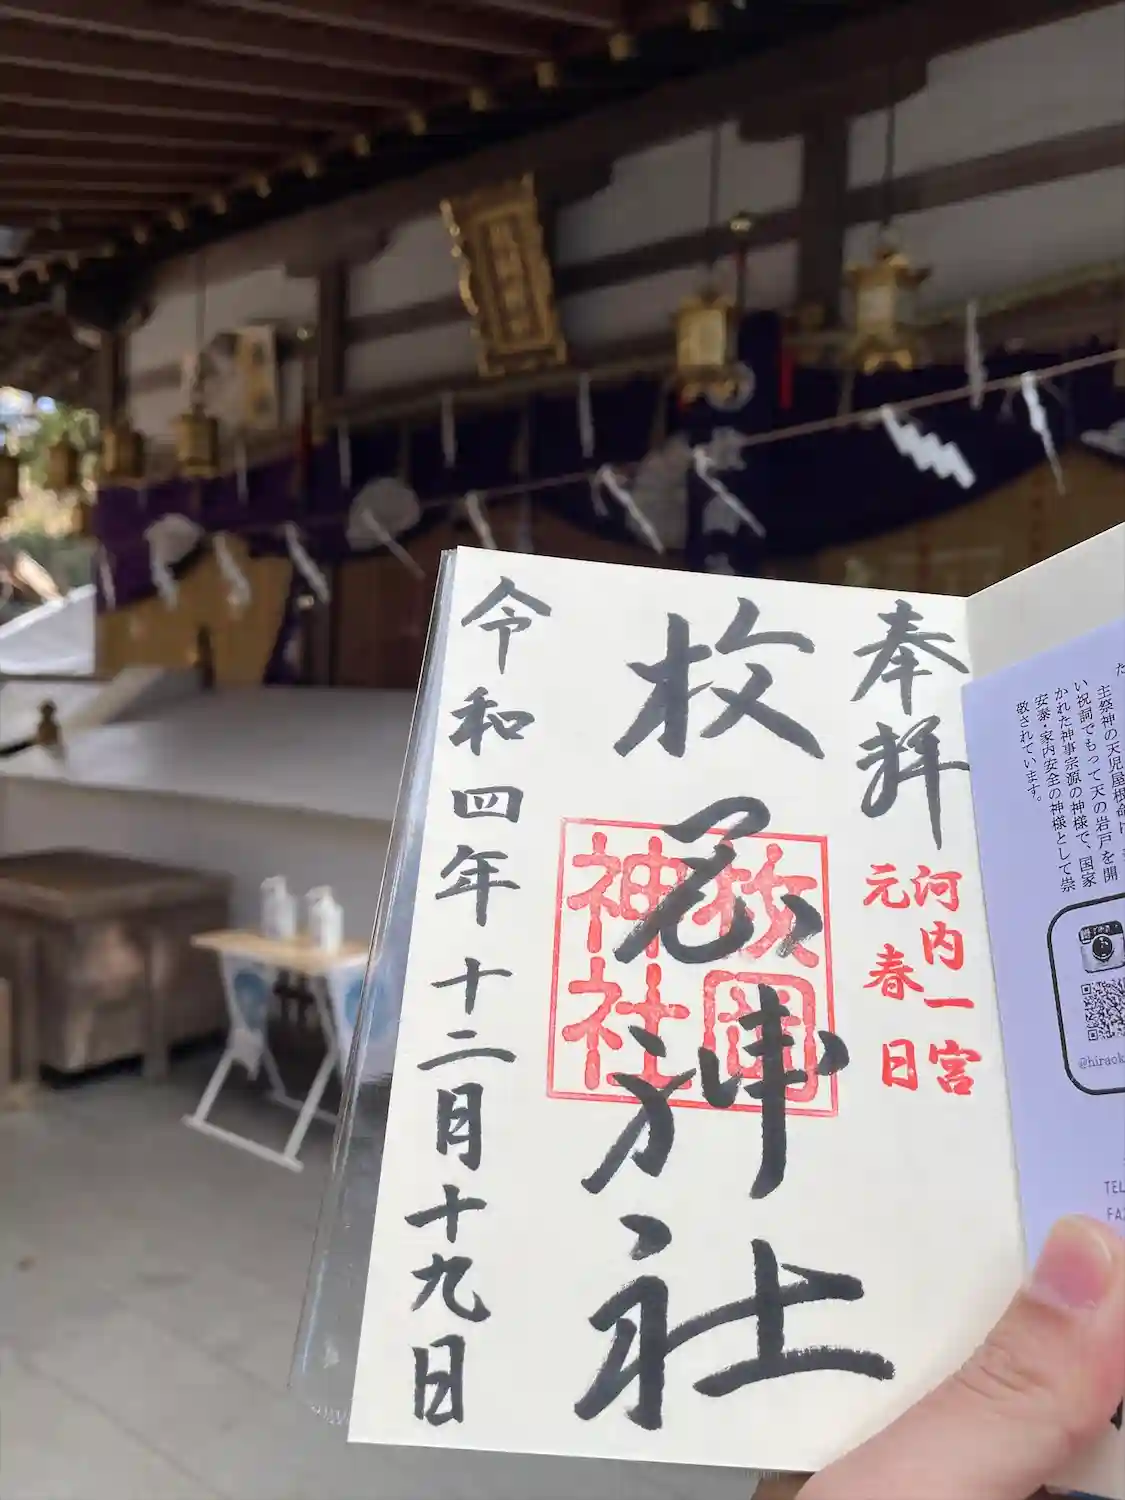 奉拝
河内一宮
元春日
枚岡神社
枚岡
神社
令和四年十二月十九日
主祭神の天児屋根命は
い祝詞でもって天の岩戸を開
かれた神事宗源の神様で、国家
安泰・家内安全の神様として崇
敬されています。
@hiraok
TEL
FAX